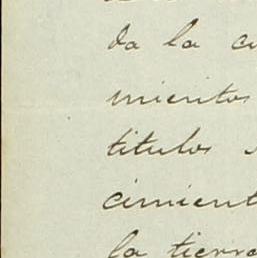 da la cu
mientos
titulos
cimient
la tierra